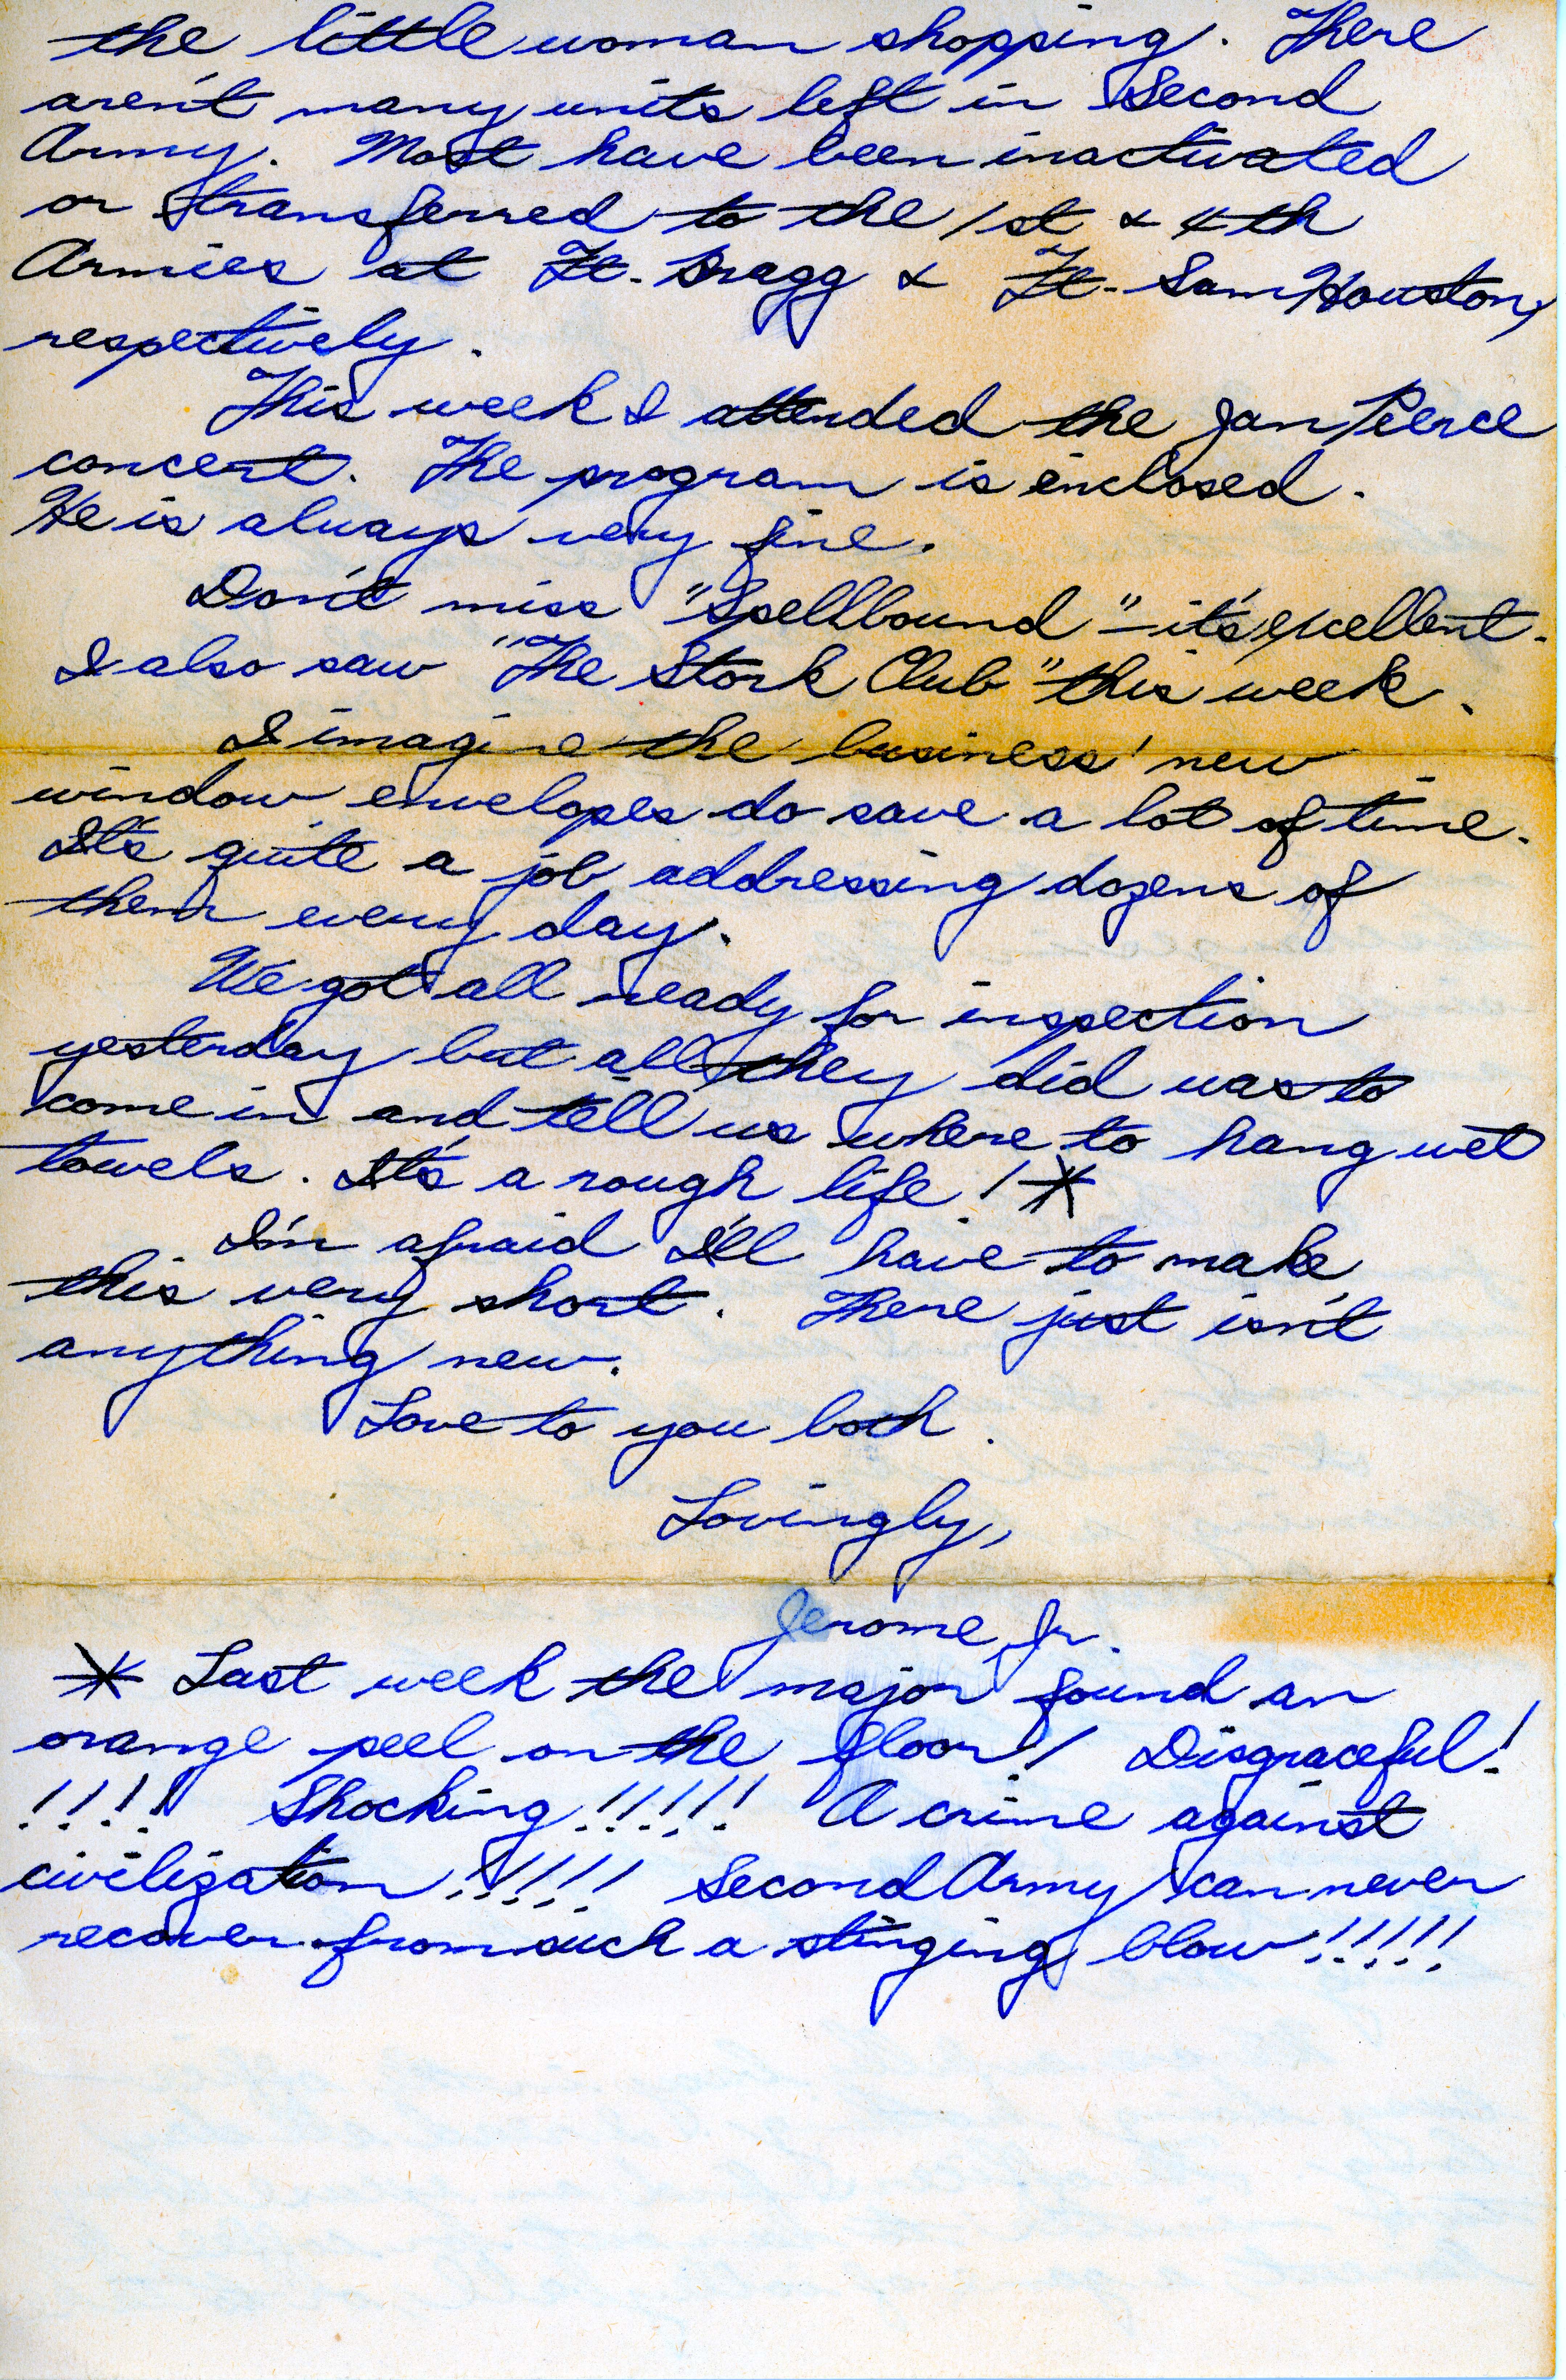 the little woman shopping. There
aren't many units left in Second
Army. Most have been inactivated
or transferred to the 1st & 4th
Armies at Ft. Bragg & Ft. Sam Houston,
respectively.
This week I attended the Jan Peerce
concert. The program is enclosed.
He is always very fine.
Don't miss "Spellbound" - it's excellent.
I also saw "The Stork Club" this week.
I imagine the business' new
window envelopes do save a lot of time.
It's quite a job addressing dozens of
them every day.
We got all ready for inspection
yesterday but all they did was to
come in and tell us where to hang wet
towels. It's a rough life! *
I'm afraid I'll have to make
this very short. There just isn't
anything new.
Love to you both.
Lovingly,
Jerome, Jr.
* Last week the major found an
orange peel on the floor! Disgraceful!
!!!! Shocking!!!!! A crime against
civilization!!!!! Second Army can never
recover from such a stinging blow!!!!!